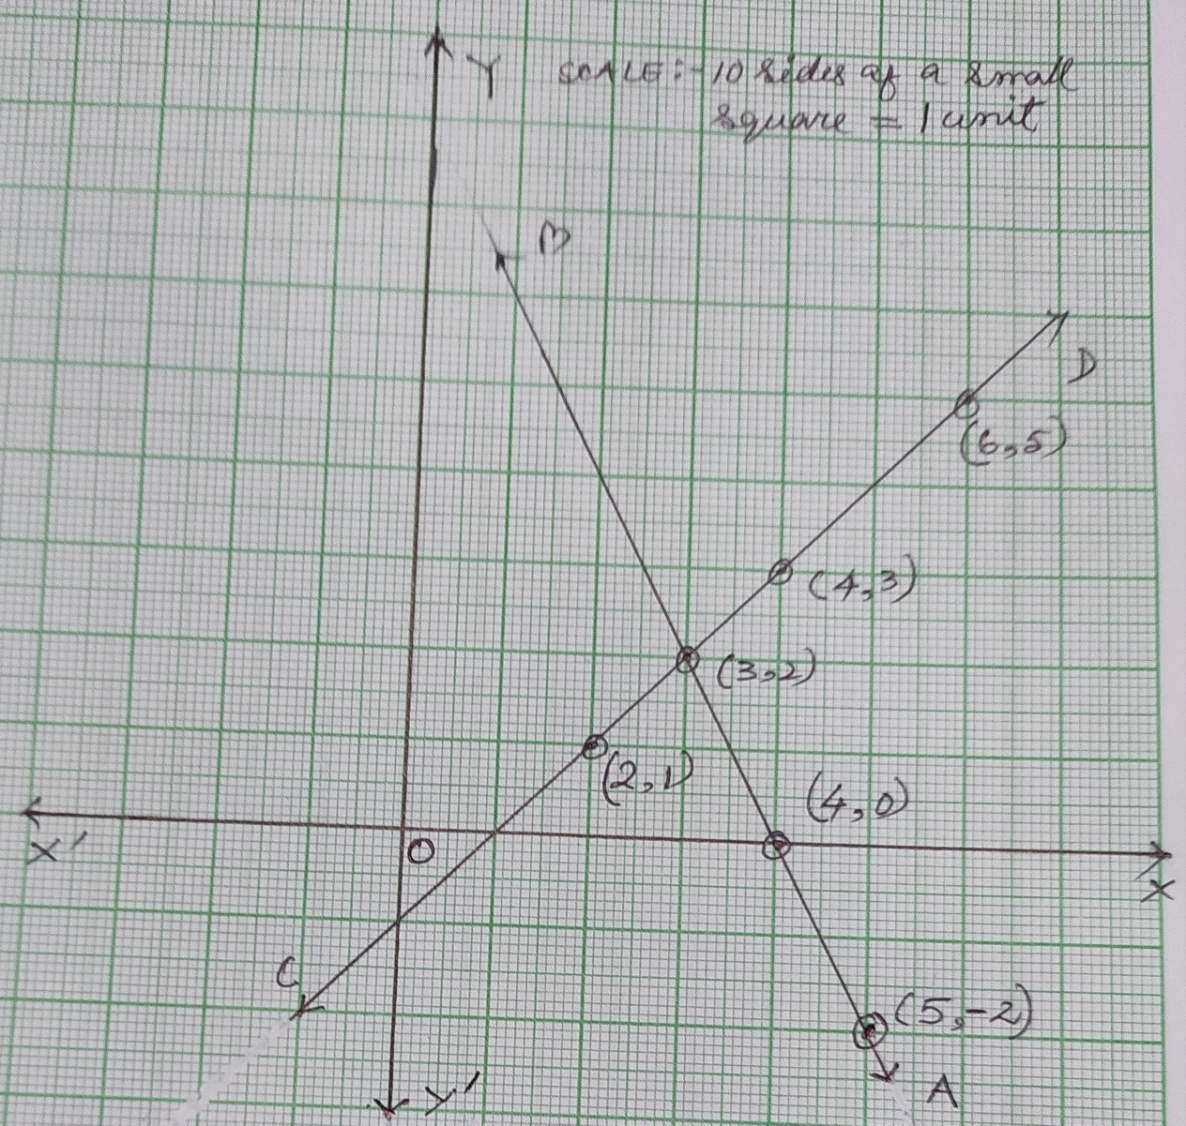 Y SCALE:- 10 sides of a small
square = 1 unit
B
D
(6,5)
(4,3)
(3,2)
(2,1)
(4,0)
X'
O
X
C
(5,-2)
Y'
A